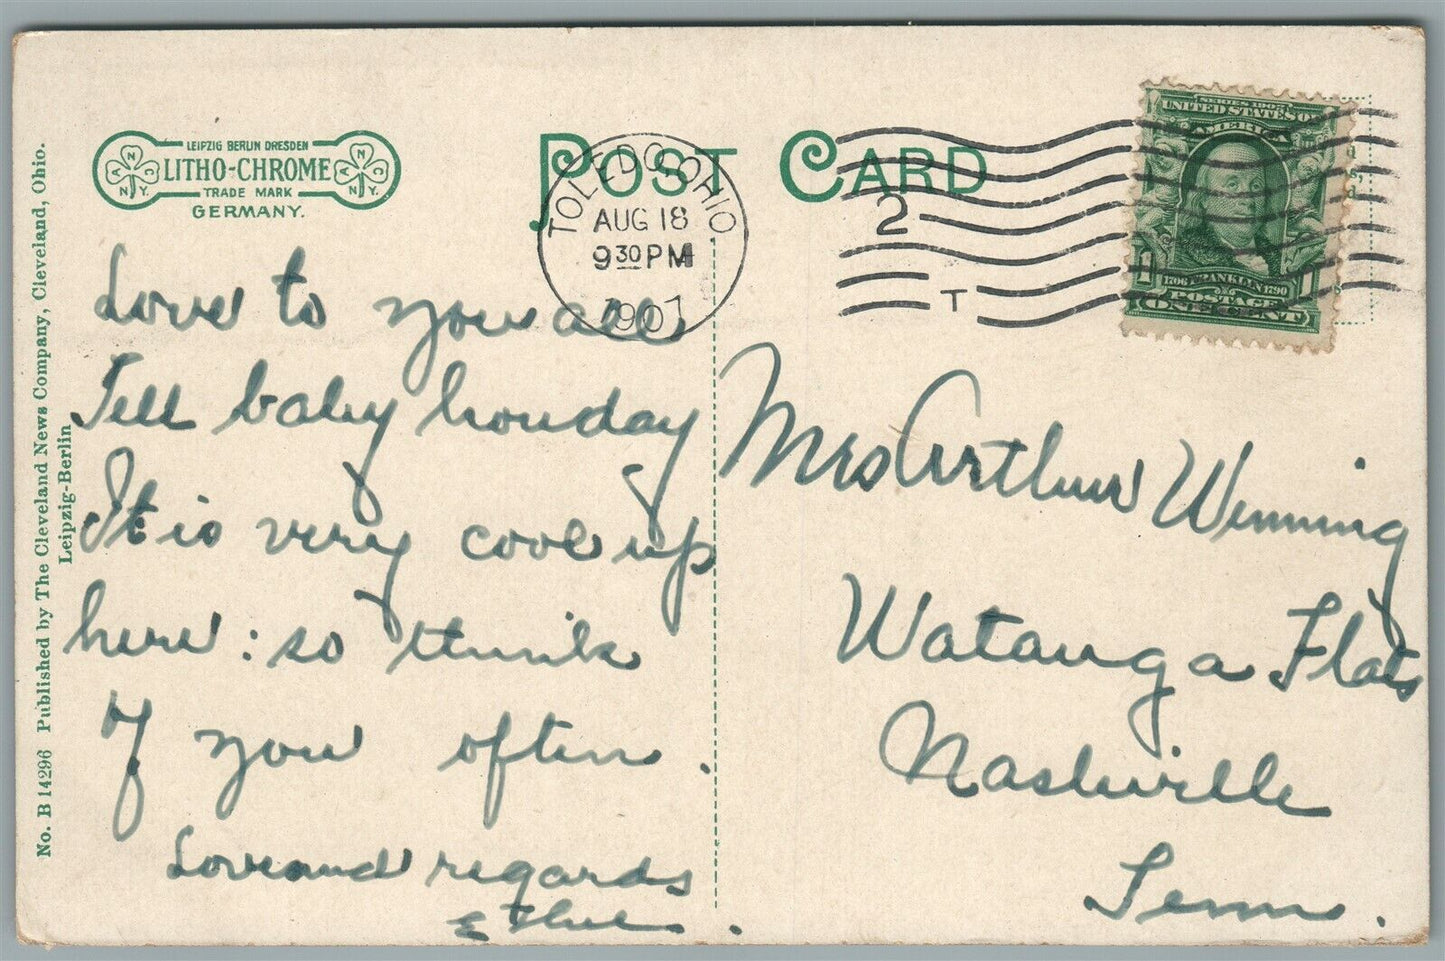 LEIPZIG BERLIN DRESDEN
LITHO-CHROME
TRADE MARK
GERMANY.
A N C N.Y.
A N C N.Y.
POST CARD
TOLEDO, OHIO
AUG 18
9 30 PM
1907
2
T
SERIES 1902
UNITED STATES OF
AMERICA
1 1706 FRANKLIN 1790 1
POSTAGE
ONE CENT
No. B 14296 Published by The Cleveland News Company, Cleveland, Ohio.
Leipzig-Berlin
Love to you all
Tell baby howday
It is very cool up
here: so think
of you often.
Love and regards
Ethel.
Mrs Arthur Winning
Watauga Flats
Nashville
Tenn.